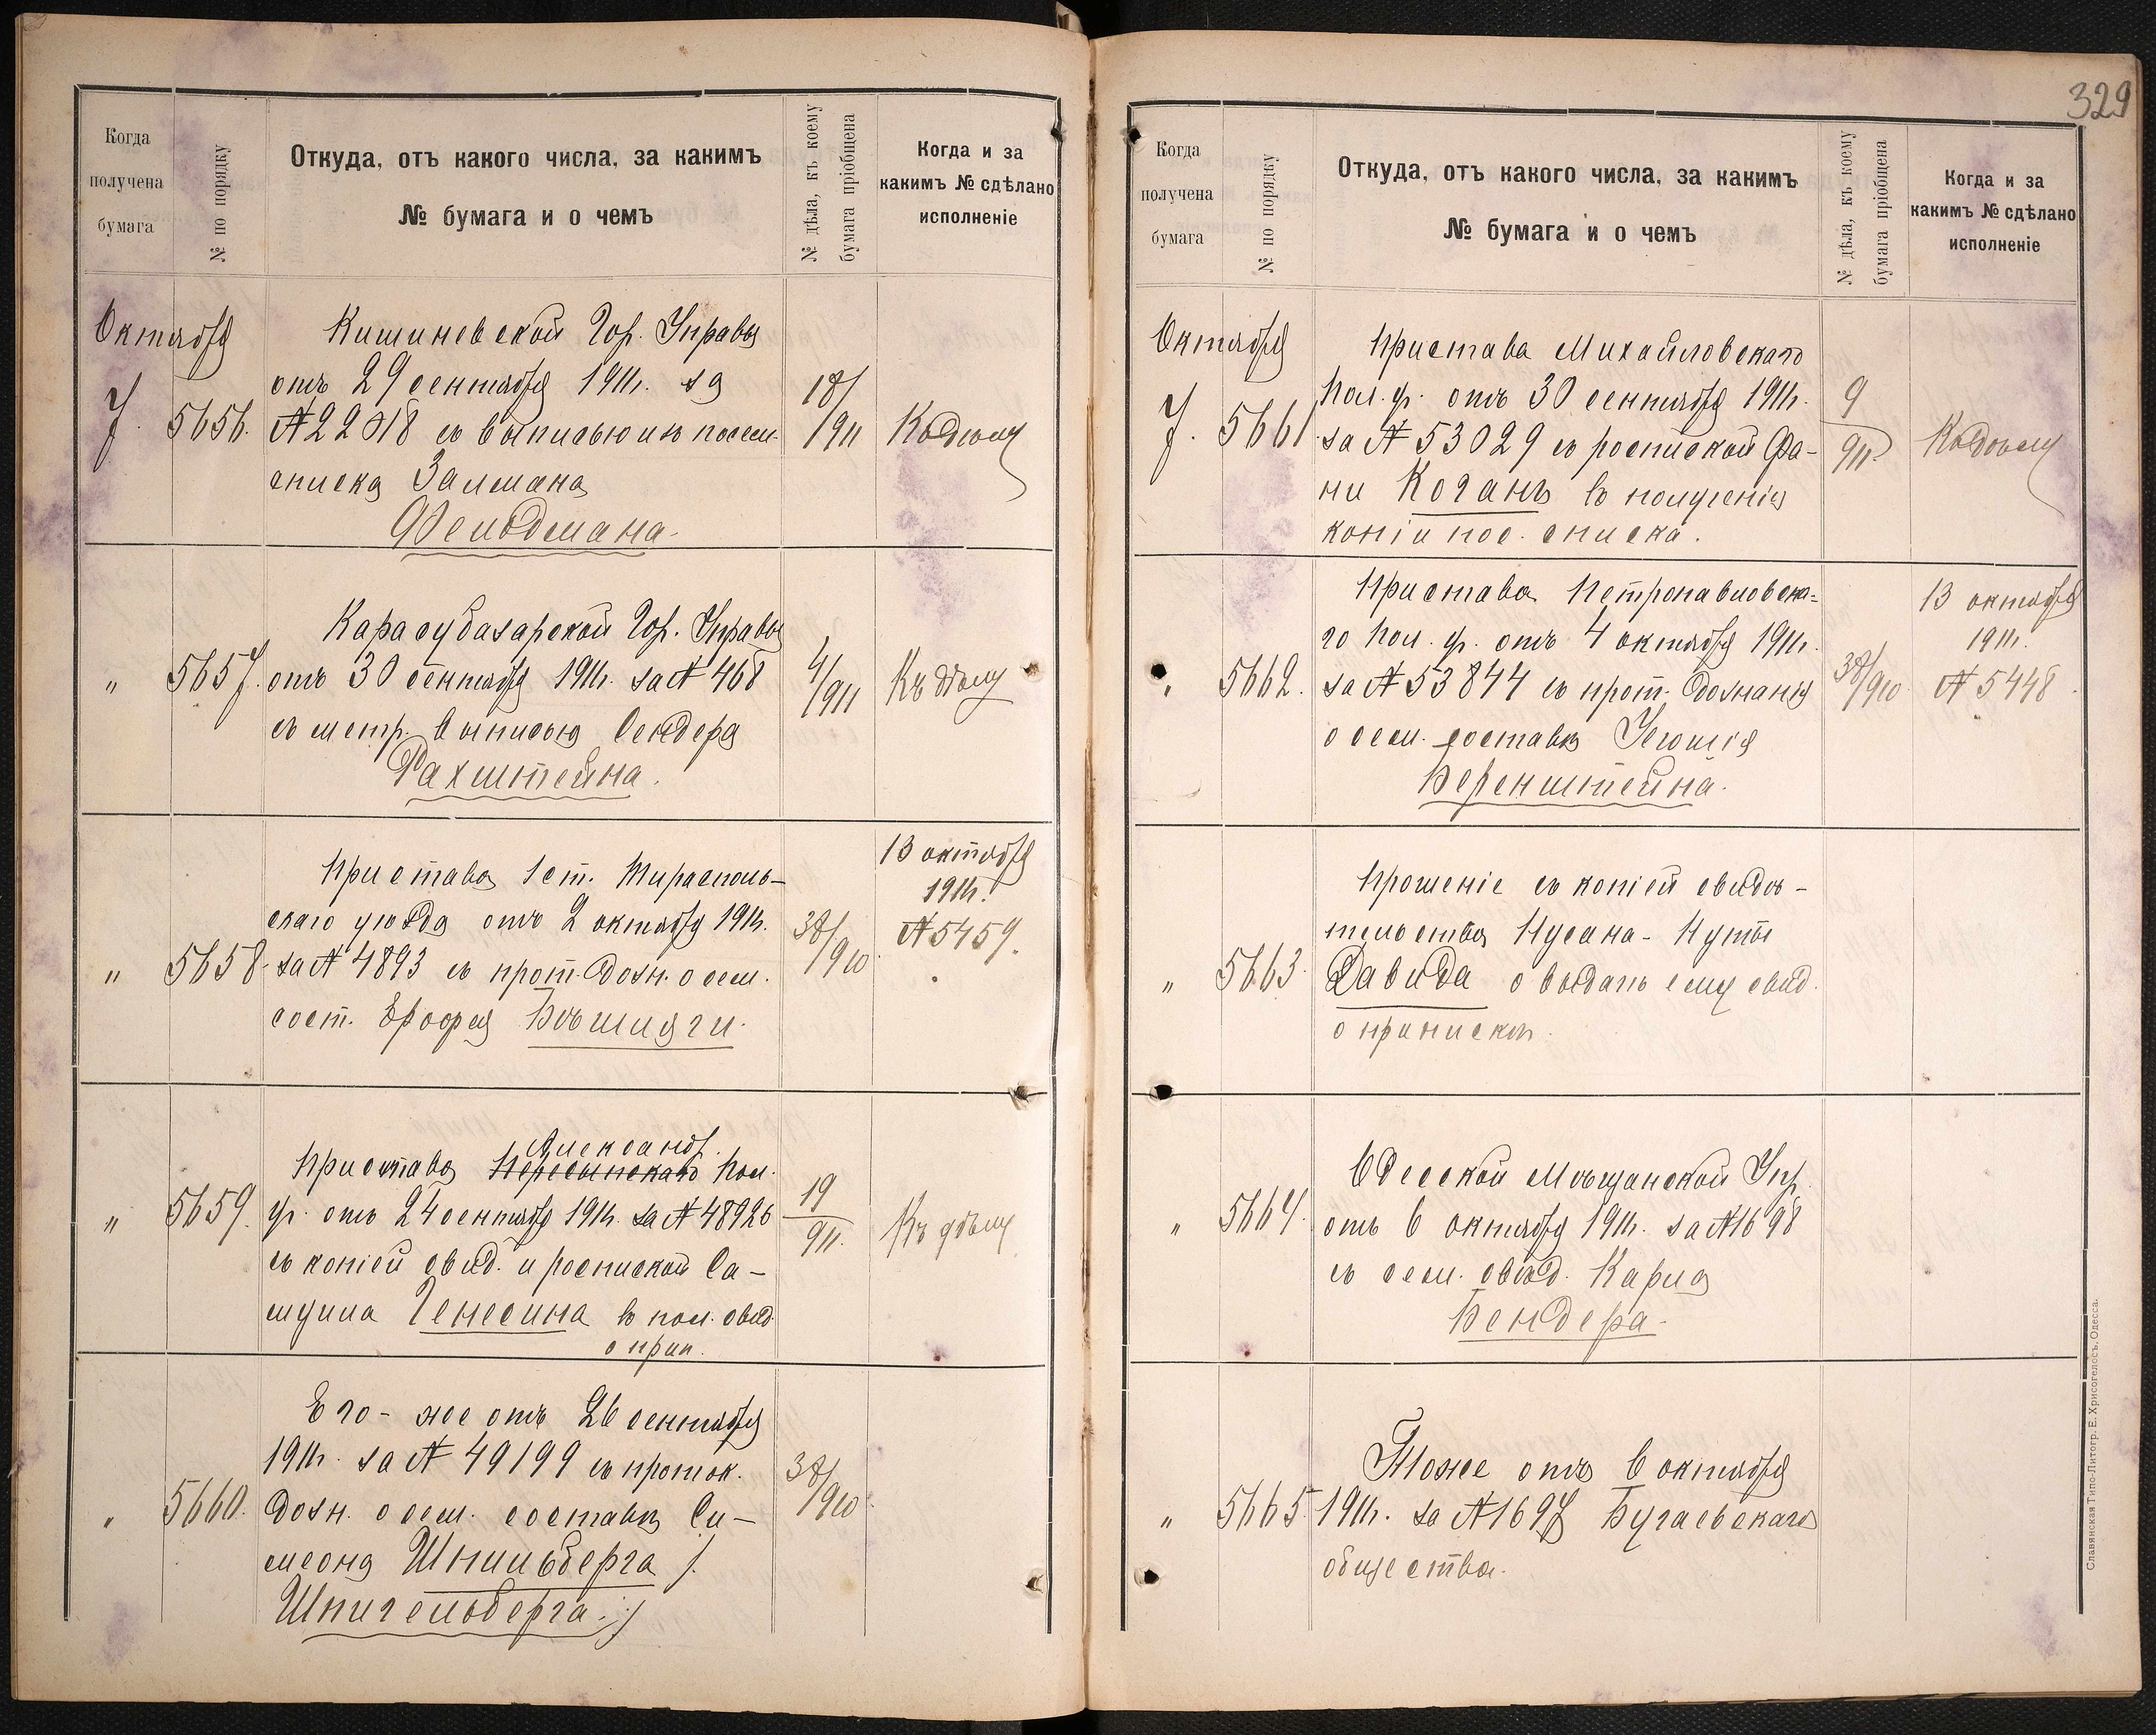 Когда
получена
бумага
№ по порядку
Откуда, отъ какого числа, за какимъ
№ бумага и о чемъ
№ дѣла, къ коему
бумага пріобщена
Когда и за
какимъ № сдѣлано
исполненіе
Октября
7.
5656.
Кишиневской Гор. Управы
отъ 29 сентября 1911г. за
№ 22918 съ выписью изъ посем.
списка Залмана
Фельдмана.
18/911
Къ дѣлу
"
5657.
Карасубазарской Гор. Управы
отъ 30 сентября 1911г. за № 468
съ метр. выписью Сендера
Рахштейна.
4/911
Къ дѣлу
"
5658.
Пристава 1 ст. Тирасполь-
скаго уѣзда отъ 2 октября 1911г.
за № 4893 съ прот. дозн. о сем.
сост.
38/910.
13 октября
1911г.
№ 5459.
"
5659.
Александр.
Пристава Пересыпскаго пол.
уч. отъ 24 сентября 1911г. за № 48926
съ копіей свид. и роспиской Са-
муила Генесина въ пол. свид.
о прип.
19
911.
Къ дѣлу
"
5660.
Его-же отъ 26 сентября
1911г. за № 49199 съ проток.
дозн. о сем. составѣ Си-
меона Шпильберга /.
Шпигельберга./
38/910.
329
Когда
получена
бумага
№ по порядку
Откуда, отъ какого числа, за какимъ
№ бумага и о чемъ
№ дѣла, къ коему
бумага пріобщена
Когда и за
какимъ № сдѣлано
исполненіе
Октября
7.
5661.
Пристава Михайловскаго
пол. уч. отъ 30 сентября 1911г.
за № 53029 съ роспиской Фа-
ни Коганъ въ полученіи
копіи пос. списка.
9
911.
Къ дѣлу
"
5662.
Пристава Петропавловска-
го пол. уч. отъ 4 октября 1911г.
за № 53844 съ прот. дознанія
о сем. составѣ
Беренштейна.
38/910.
13 октября
1911г.
№ 5448.
"
5663.
Прошеніе съ копіей свидѣ-
тельства Нусана-Нуты
Давида о выдачѣ ему свид.
о припискѣ.
"
5664.
Одесской Мѣщанской Упр.
отъ 6 октября 1911г. за № 1698
съ сем. свид. Карла
Бендера.
"
5665.
Тоже отъ 6 октября
1911г. за № 1697 Бугаевскаго
общества.
Славянская Типо-Литогр. Е. Хрисогелосъ, Одесса.